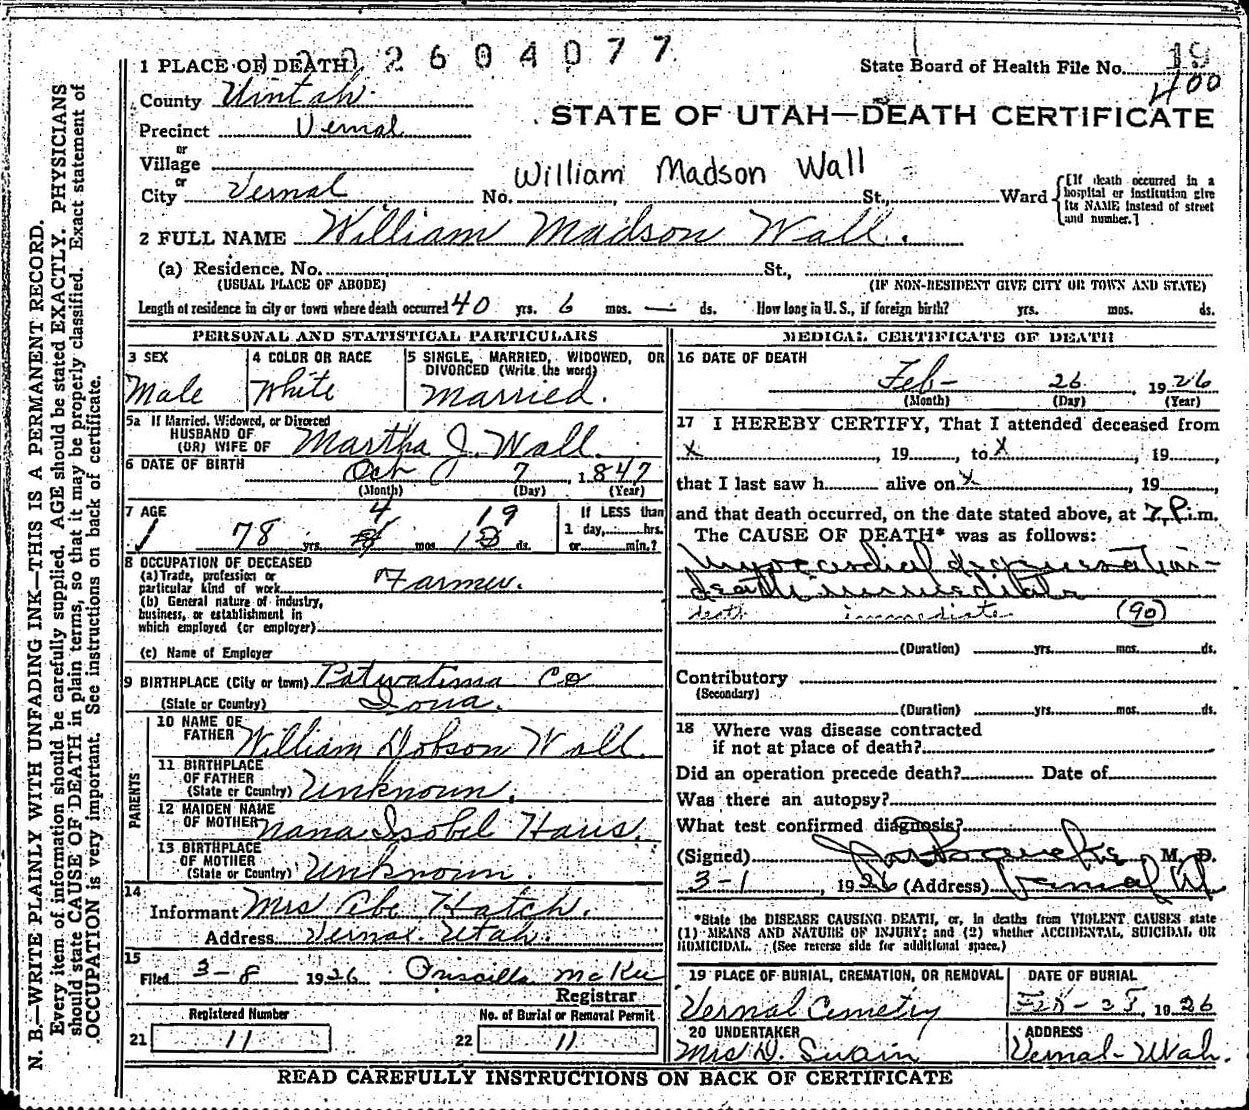 2604077
19
400
1 PLACE OF DEATH
State Board of Health File No.
County Uintah
STATE OF UTAH—DEATH CERTIFICATE
Precinct Vernal
or
Village
or
City Vernal No. William Madson Wall St., Ward [If death occurred in a hospital or institution give its NAME instead of street and number.]
2 FULL NAME William Madson Wall.
(a) Residence. No. St.,
(USUAL PLACE OF ABODE) (IF NON-RESIDENT GIVE CITY OR TOWN AND STATE)
Length of residence in city or town where death occurred 40 yrs. 6 mos. — ds. How long in U. S., if foreign birth? yrs. mos. ds.
PERSONAL AND STATISTICAL PARTICULARS
3 SEX
Male
4 COLOR OR RACE
White
5 SINGLE, MARRIED, WIDOWED, OR
DIVORCED (Write the word)
Married.
5a If Married, Widowed, or Divorced
HUSBAND OF
(OR) WIFE OF Martha J. Wall.
6 DATE OF BIRTH Oct 7, 1847
(Month) (Day) (Year)
7 AGE 4 19
78 yrs. mos. ds.
If LESS than
1 day, hrs.
or min.?
8 OCCUPATION OF DECEASED
(a) Trade, profession or
particular kind of work Farmer.
(b) General nature of industry,
business, or establishment in
which employed (or employer)
(c) Name of Employer
9 BIRTHPLACE (City or town) Potwatima Co
(State or Country) Iowa.
PARENTS
10 NAME OF
FATHER William Dobson Wall.
11 BIRTHPLACE
OF FATHER
(State or Country) Unknown.
12 MAIDEN NAME
OF MOTHER Nana Isobel Haris.
13 BIRTHPLACE
OF MOTHER
(State or Country) Unknown.
14
Informant Mrs Abe Hatch.
Address Vernal. Utah.
15
Filed 3-8 1926 Priscilla McKee
Registrar
Registered Number
21 11
No. of Burial or Removal Permit
22 11
MEDICAL CERTIFICATE OF DEATH
16 DATE OF DEATH
Feb- 26, 1926
(Month) (Day) (Year)
17 I HEREBY CERTIFY, That I attended deceased from
x, 19, to x, 19,
that I last saw h alive on x, 19,
and that death occurred, on the date stated above, at 7 P.m.
The CAUSE OF DEATH* was as follows:
Myocardial degeneration-
death immediate
death immediate (90)
(Duration) yrs. mos. ds.
Contributory
(Secondary)
(Duration) yrs. mos. ds.
18 Where was disease contracted
if not at place of death?
Did an operation precede death? Date of
Was there an autopsy?
What test confirmed diagnosis?
(Signed) M. D.
3-1, 1926 (Address) Vernal Ut
*State the DISEASE CAUSING DEATH, or, in deaths from VIOLENT CAUSES state
(1) MEANS AND NATURE OF INJURY; and (2) whether ACCIDENTAL, SUICIDAL OR
HOMICIDAL. (See reverse side for additional space.)
19 PLACE OF BURIAL, CREMATION, OR REMOVAL
Vernal Cemetry
DATE OF BURIAL
1926
20 UNDERTAKER
Mrs D. Swain
ADDRESS
Vernal-Utah.
READ CAREFULLY INSTRUCTIONS ON BACK OF CERTIFICATE
N. B.—WRITE PLAINLY WITH UNFADING INK—THIS IS A PERMANENT RECORD.
Every item of information should be carefully supplied. AGE should be stated EXACTLY. PHYSICIANS
should state CAUSE OF DEATH in plain terms, so that it may be properly classified. Exact statement of
OCCUPATION is very important. See instructions on back of certificate.